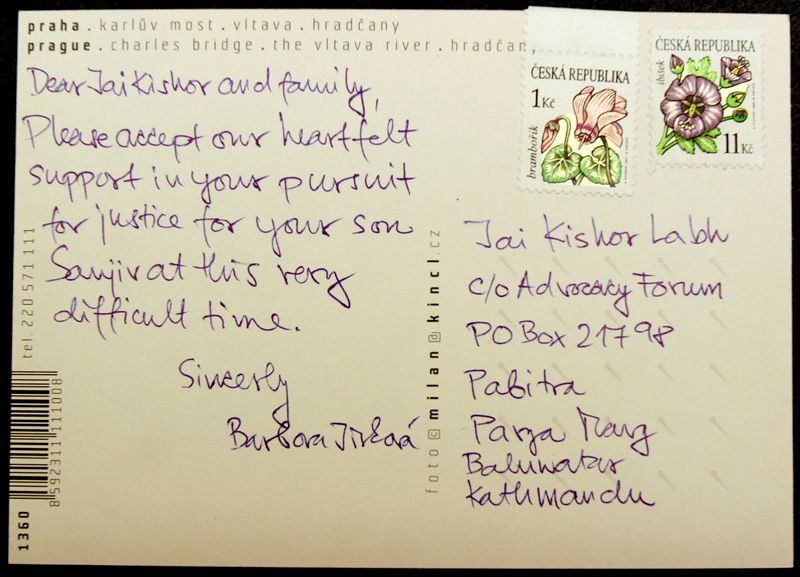 praha . karlův most . vltava . hradčany
prague . charles bridge . the vltava river . hradčany
Dear Jai Kishor and family,
Please accept our heartfelt
support in your pursuit
for justice for your son
Sanjiv at this very
difficult time.
Sincerly
Barbora
ČESKÁ REPUBLIKA
1 Kč
brambořík
ČESKÁ REPUBLIKA
ibišek
11 Kč
Jai Kishor Labh
c/o Advocacy Forum
PO Box 21798
Pabitra
Parya Marg
Baluwatar
Kathmandu
tel. 220 571 111
foto © milan@kincl.cz
8 592311 111008
1360